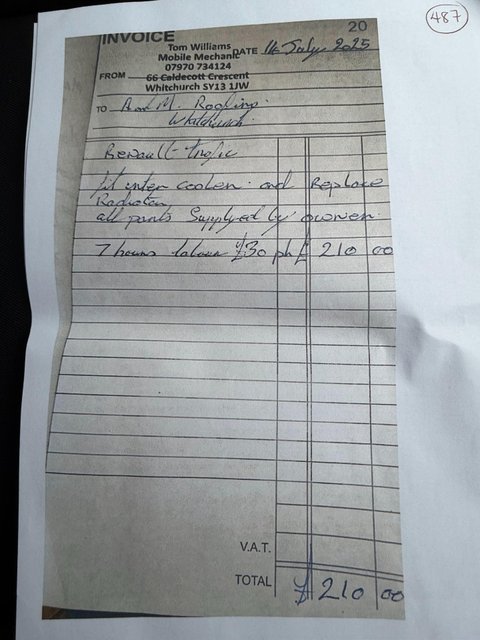 487
INVOICE 20
Tom Williams
Mobile Mechanic
07970 734124
DATE 14 July 2025
FROM 66 Caldecott Crescent
Whitchurch SY13 1JW
TO A and M. Roofing.
Whitchurch.
Renault trafic
fit inter cooler. and Replace
Radiator
all parts Supplyed by owner.
7 hours labour £30 ph £ 210 00
V.A.T.
TOTAL £ 210 00